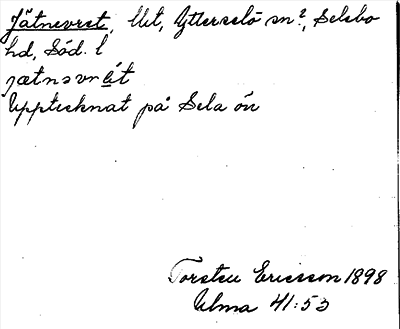 Jätnevret, Utt, Ytterselö sn?, Selebo
hd, Söd. l
jætnavrét
Upptecknat på Sela ön
Torsten Ericsson 1898
Ulma 41:53